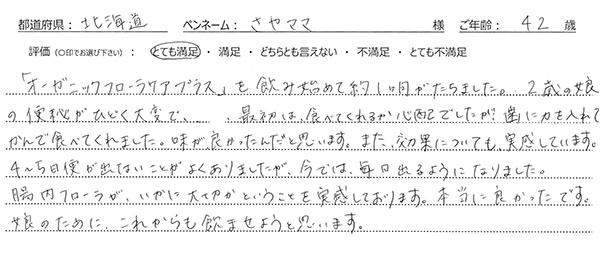 都道府県：北海道 ペンネーム：さやママ 様 ご年齢：42歳
評価（○印でお選び下さい）：とても満足・満足・どちらとも言えない・不満足・とても不満足
「オーガニックフローラケアプラス」を飲み始めて約1ヶ月がたちました。2歳の娘
の便秘がひどく大変で、、最初は、食べてくれるか心配でしたが歯に力を入れて
かんで食べてくれました。味が良かったんだと思います。また、効果についても、実感しています。
4〜5日便が出ないことがよくありましたが、今では、毎日出るようになりました。
腸内フローラが、いかに大切かということを実感しております。本当に良かったです。
娘のために、これからも飲ませようと思います。